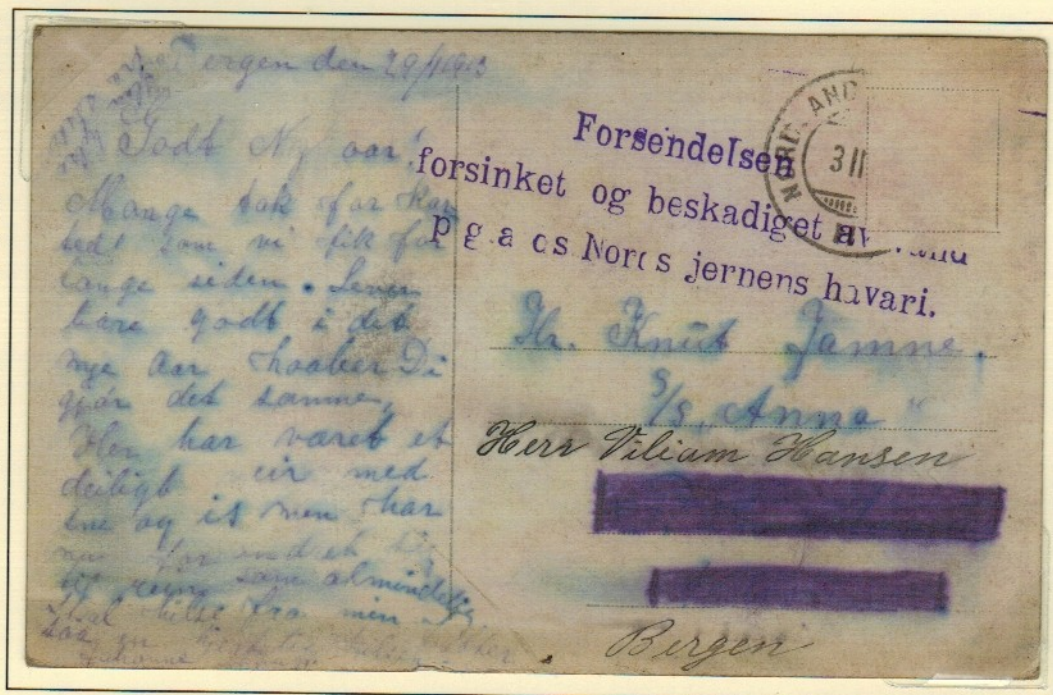 Bergen den 29/1 1913
Godt Ny aar!
Mange tak for kor
tedt som vi fik for
lange siden. Lever
bare godt i det
nye aar haaber Di
gjør det samme,
Her har været et
deiligt eir med
sne og is men har
nu forandret sig
til regn som almindelig
Skal hilse fra min
saa en hilsen
Forsendelsen
forsinket og beskadiget av
p g.a  s Nor s jernens havari.
NORDLAND
3 II
Hr. Knut Jamne.
S/S „Anna"
Herr Viliam Hansen
Bergen